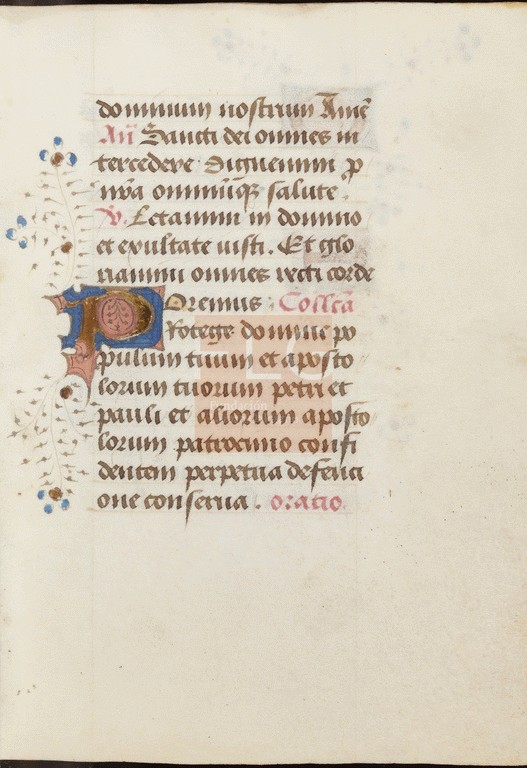 dominum nostrum Amē
Añ Sancti dei omnes in
tercedere dignemini p
nr̄a omniūqꝫ salute.
V. Letamini in domino
et exultate iusti. Et glo
riamini omnes recti corde
Oremus. Collcā
Protege domine po
pulum tuum et aposto
lorum tuorum petri et
pauli et aliorum aposto
lorum patrocinio confi
dentem perpetua defensi
one conserua. oratio.